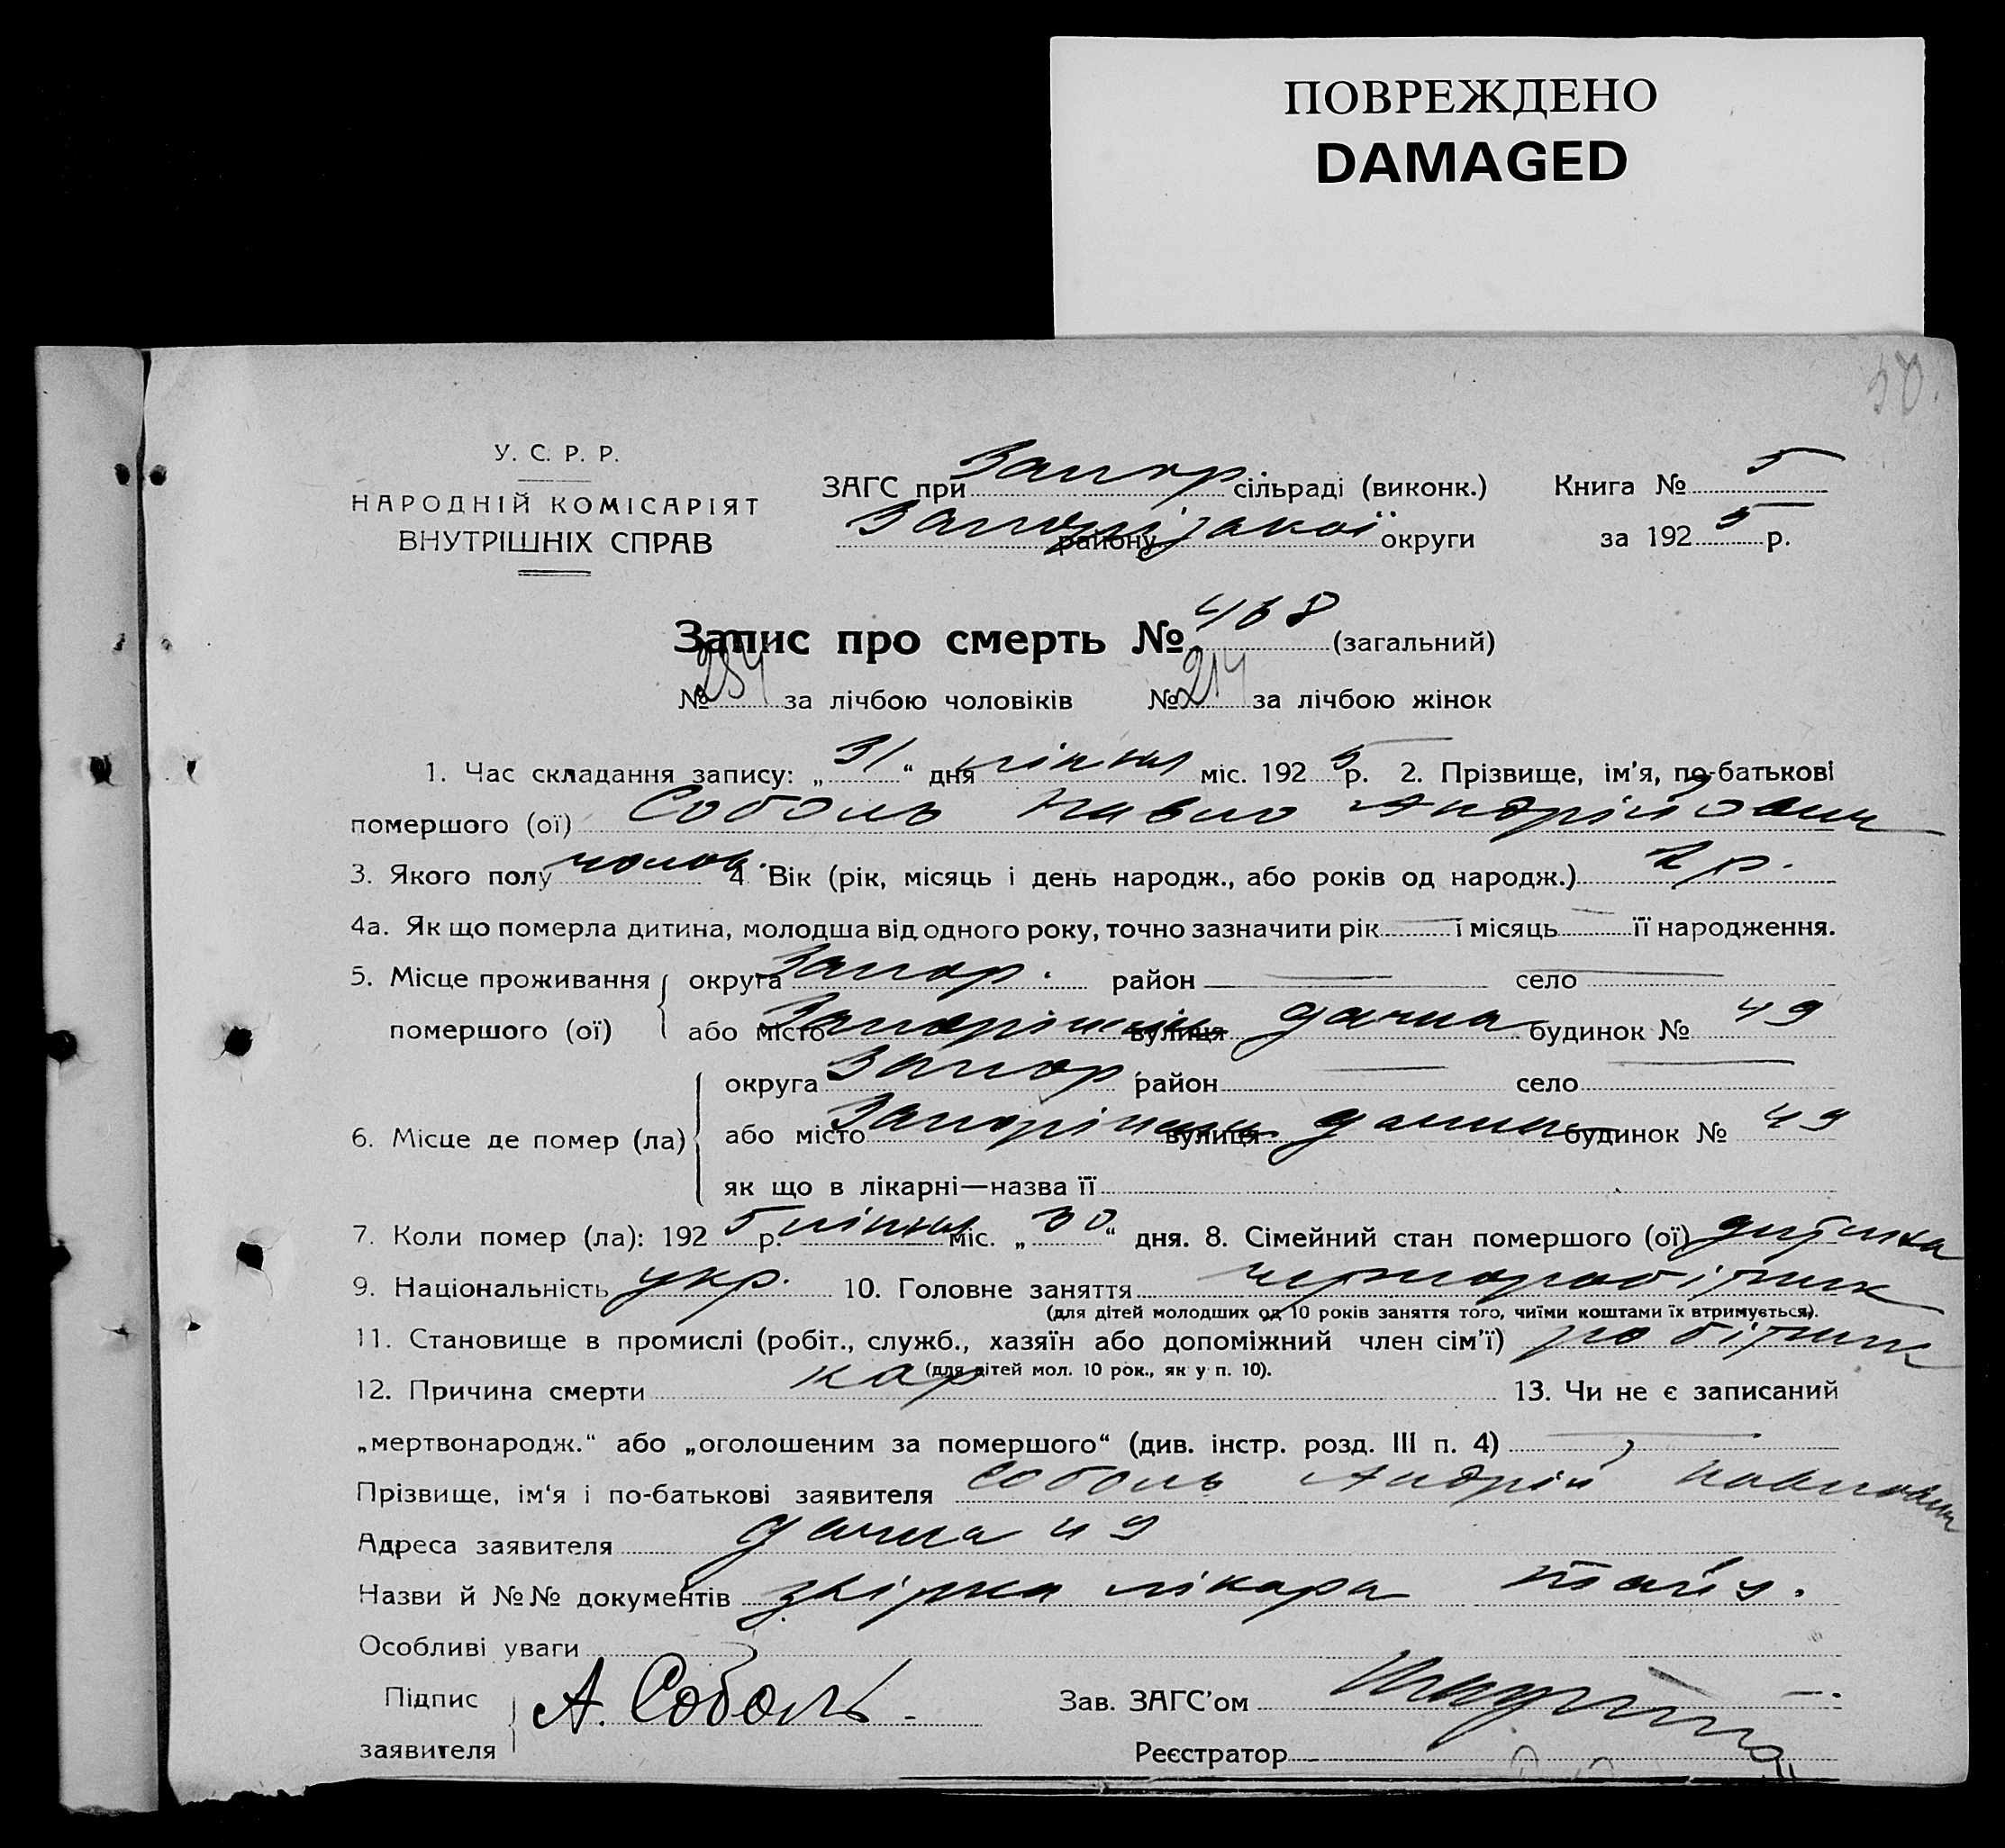 ПОВРЕЖДЕНО
DAMAGED
50.
У. С. Р. Р.
НАРОДНІЙ КОМІСАРІЯТ
ВНУТРІШНІХ СПРАВ
ЗАГС при Запор сільраді (виконк.) Книга № 5
Запорізької району округи за 1925 р.
Запис про смерть № 468 (загальний)
№ 254 за лічбою чоловіків № 214 за лічбою жінок
1. Час складання запису: „31“ дня липня міс. 1925 р. 2. Прізвище, ім'я, по-батькові
помершого (ої) Соболь Павло Андрійович
3. Якого полу чолов. 4. Вік (рік, місяць і день народж., або років од народж.) 2 р.
4а. Як що померла дитина, молодша від одного року, точно зазначити рік — і місяць — її народження.
5. Місце проживання округа Запор. район — село —
помершого (ої) або місто Запоріжжя вулиця Дачна будинок № 49
округа Запор. район — село —
6. Місце де помер (ла) або місто Запоріжжя вулиця Дачна будинок № 49
як що в лікарні—назва її
7. Коли помер (ла): 1925 р. липня міс. „30“ дня. 8. Сімейний стан помершого (ої) дитина
9. Національність укр. 10. Головне заняття чорноробітник
(для дітей молодших од 10 років заняття того, чиїми коштами їх втримується).
11. Становище в промислі (робіт., служб., хазяїн або допоміжний член сім'ї) робітник
(для дітей мол. 10 рок., як у п. 10).
12. Причина смерти кар 13. Чи не є записаний
„мертвонародж.“ або „оголошеним за помершого“ (див. інстр. розд. III п. 4) —
Прізвище, ім'я і по-батькові заявителя Соболь Андрій Павлович
Адреса заявителя Дачна 49
Назви й №№ документів лікаря
Особливі уваги
Підпис
заявителя А. Соболь
Зав. ЗАГС'ом
Реєстратор